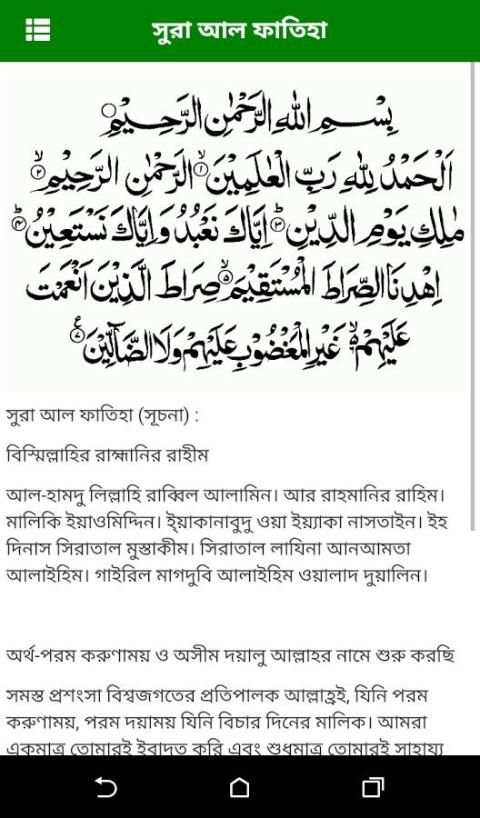 সুরা আল ফাতিহা
بِسْمِ اللهِ الرَّحْمٰنِ الرَّحِيْمِ
اَلْحَمْدُ لِلّٰهِ رَبِّ الْعٰلَمِيْنَ ۙ﴿۱﴾ الرَّحْمٰنِ الرَّحِيْمِ ۙ﴿۲﴾
مٰلِكِ يَوْمِ الدِّيْنِ ؕ﴿۳﴾ اِيَّاكَ نَعْبُدُ وَاِيَّاكَ نَسْتَعِيْنُ ؕ﴿۴﴾
اِهْدِنَا الصِّرَاطَ الْمُسْتَقِيْمَ ۙ﴿۵﴾ صِرَاطَ الَّذِيْنَ اَنْعَمْتَ
عَلَيْهِمْ ۙ۬﴿۶﴾ غَيْرِ الْمَغْضُوْبِ عَلَيْهِمْ وَلَا الضَّآلِّيْنَ ﴿۷﴾
সুরা আল ফাতিহা (সূচনা) :
বিস্মিল্লাহির রাহ্মানির রাহীম
আল-হামদু লিল্লাহি রাব্বিল আলামিন। আর রাহমানির রাহিম।
মালিকি ইয়াওমিদ্দিন। ই্য়াকানাবুদু ওয়া ইয়্যাকা নাসতাইন। ইহ
দিনাস সিরাতাল মুস্তাকীম। সিরাতাল লাযিনা আনআমতা
আলাইহিম। গাইরিল মাগদুবি আলাইহিম ওয়ালাদ দুয়ালিন।
অর্থ-পরম করুণাময় ও অসীম দয়ালু আল্লাহর নামে শুরু করছি
সমস্ত প্রশংসা বিশ্বজগতের প্রতিপালক আল্লাহ্রই, যিনি পরম
করুণাময়, পরম দয়াময় যিনি বিচার দিনের মালিক। আমরা
একমাত্র তোমারই ইবাদত করি এবং শুধুমাত্র তোমারই সাহায্য